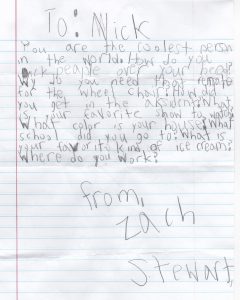 To: Nick
You are the coolest person
in the world. How do you
pick people over your head?
Why do you need that remote
for the wheel chair? How did
you get in the accsident? What
is your favorite show to watch?
What color is your house? What
school did you go to? What is
your favorite kind of ice cream?
Where do you work?
from,
Zach
Stewart,